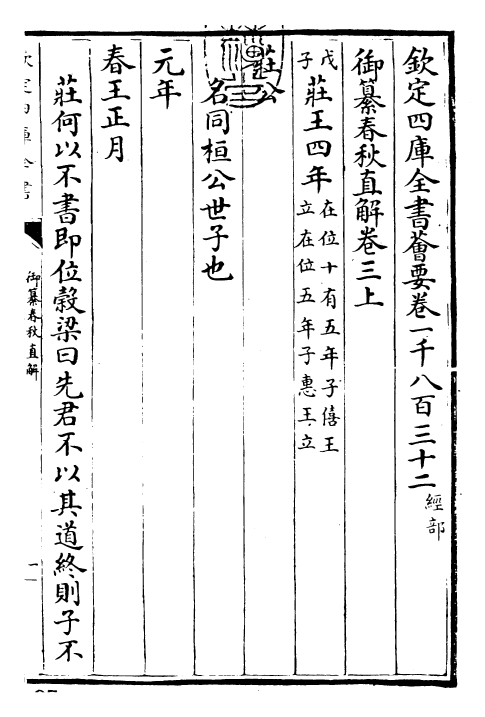 欽定四庫全書薈要卷一千八百三十二 經部
御纂春秋直解卷三上
戊子 莊王四年 在位十有五年子僖王立在位五年子惠王立
莊公
名同桓公世子也
元年
春王正月
莊何以不書即位穀梁曰先君不以其道終則子不
欽定四庫全書
御纂春秋直解
一